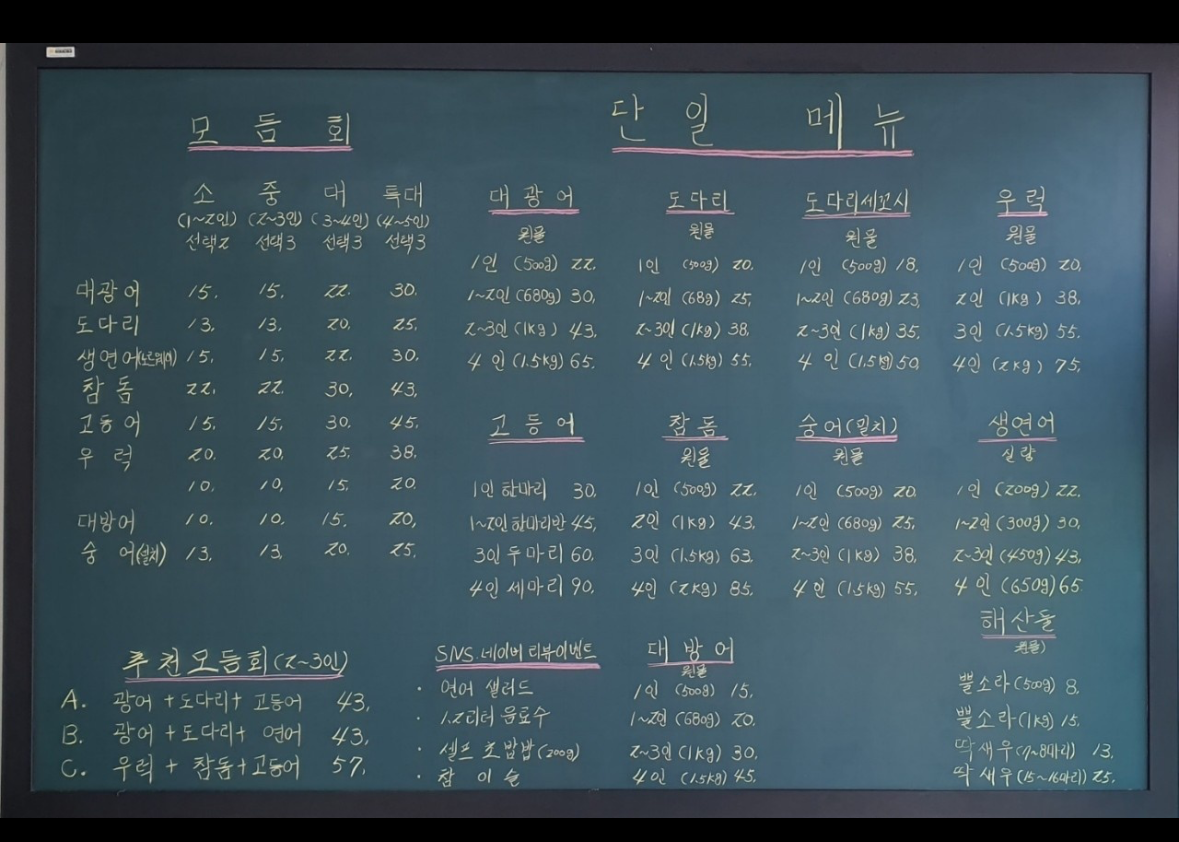 모듬회
소 중 대 특대
(1~2인) (2~3인) (3~4인) (4~5인)
선택2 선택3 선택3 선택3
대광어 15. 15. 22. 30.
도다리 13. 13. 20. 25.
생연어(노르웨이) 15. 15. 22. 30.
참돔 22. 22. 30. 43.
고등어 15. 15. 30. 45.
우럭 20. 20. 25. 38.
10. 10. 15. 20.
대방어 10. 10. 15. 20.
숭어 13. 13. 20. 25.
추천모듬회(2~3인)
A. 광어+도다리+고등어 43.
B. 광어+도다리+연어 43.
C. 우럭+참돔+고등어 57.
단일 메뉴
대광어
원물
1인 (500g) 22.
1~2인 (680g) 30.
2~3인 (1kg) 43.
4인 (1.5kg) 65.
도다리
원물
1인 (500g) 20.
1~2인 (68g) 25.
2~3인 (1kg) 38.
4인 (1.5kg) 55.
도다리세꼬시
원물
1인 (500g) 18.
1~2인 (680g) 23.
2~3인 (1kg) 35.
4인 (1.5kg) 50.
우럭
원물
1인 (500g) 20.
2인 (1kg) 38.
3인 (1.5kg) 55.
4인 (2kg) 75.
고등어
1인 한마리 30.
1~2인 한마리반 45.
3인 두마리 60.
4인 세마리 90.
참돔
원물
1인 (500g) 22.
2인 (1kg) 43.
3인 (1.5kg) 63.
4인 (2kg) 85.
숭어(밀치)
원물
1인 (500g) 20.
1~2인 (680g) 25.
2~3인 (1kg) 38.
4인 (1.5kg) 55.
생연어
실량
1인 (200g) 22.
1~2인 (300g) 30.
2~3인 (450g) 43.
4인 (650g) 65.
SNS.네이버 리뷰이벤트
· 연어 샐러드
· 1.2리터 음료수
· 셀프 초밥밥(200g)
· 참이슬
대방어
원물
1인 (500g) 15.
1~2인 (680g) 20.
2~3인 (1kg) 30.
4인 (1.5kg) 45.
해산물
원물)
뿔소라(500g) 8.
뿔소라(1kg) 15.
딱새우(7~8마리) 13.
딱새우(15~16마리) 25.